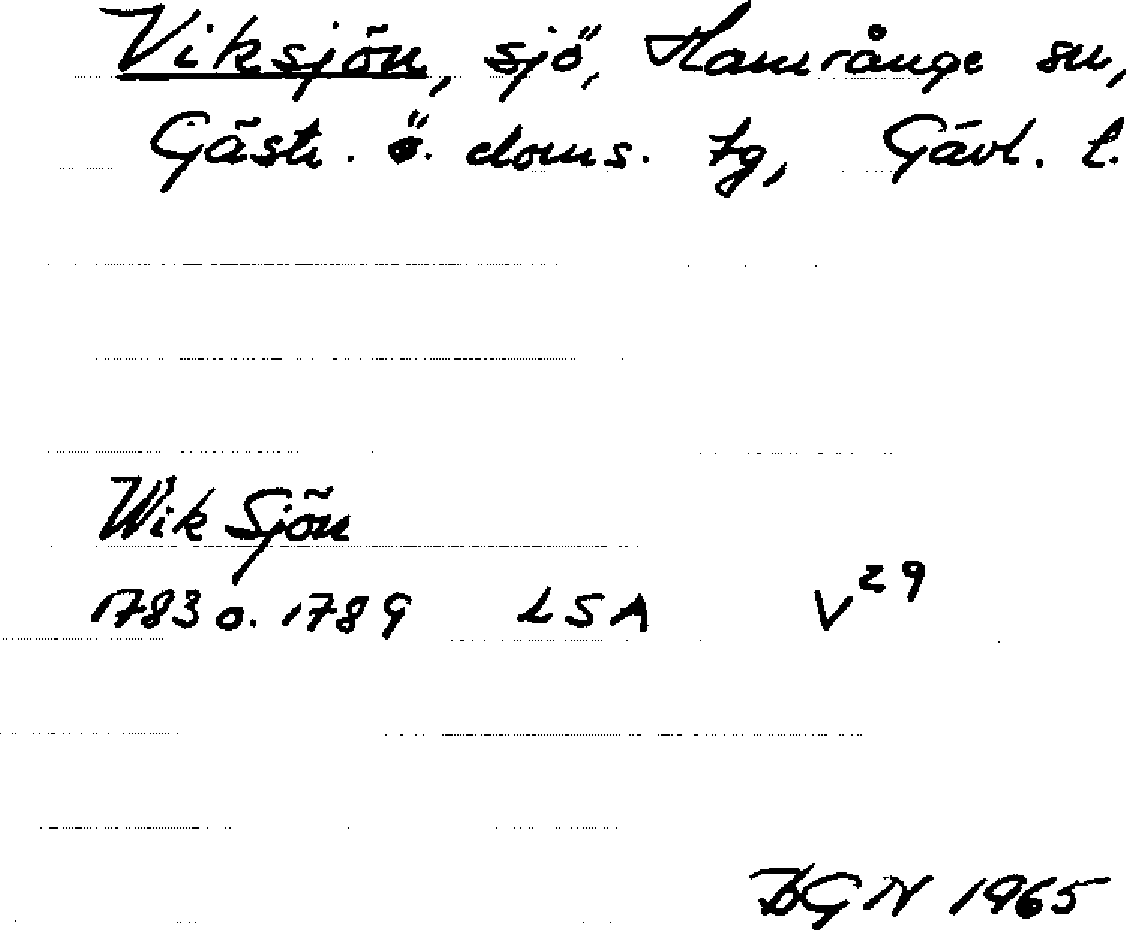 Viksjön, sjö, Hamrånge sn,
Gästr. ö. doms. tg, Gävl. l.
Wik Sjön
1783 o. 1789 LSA V29
DGN 1965